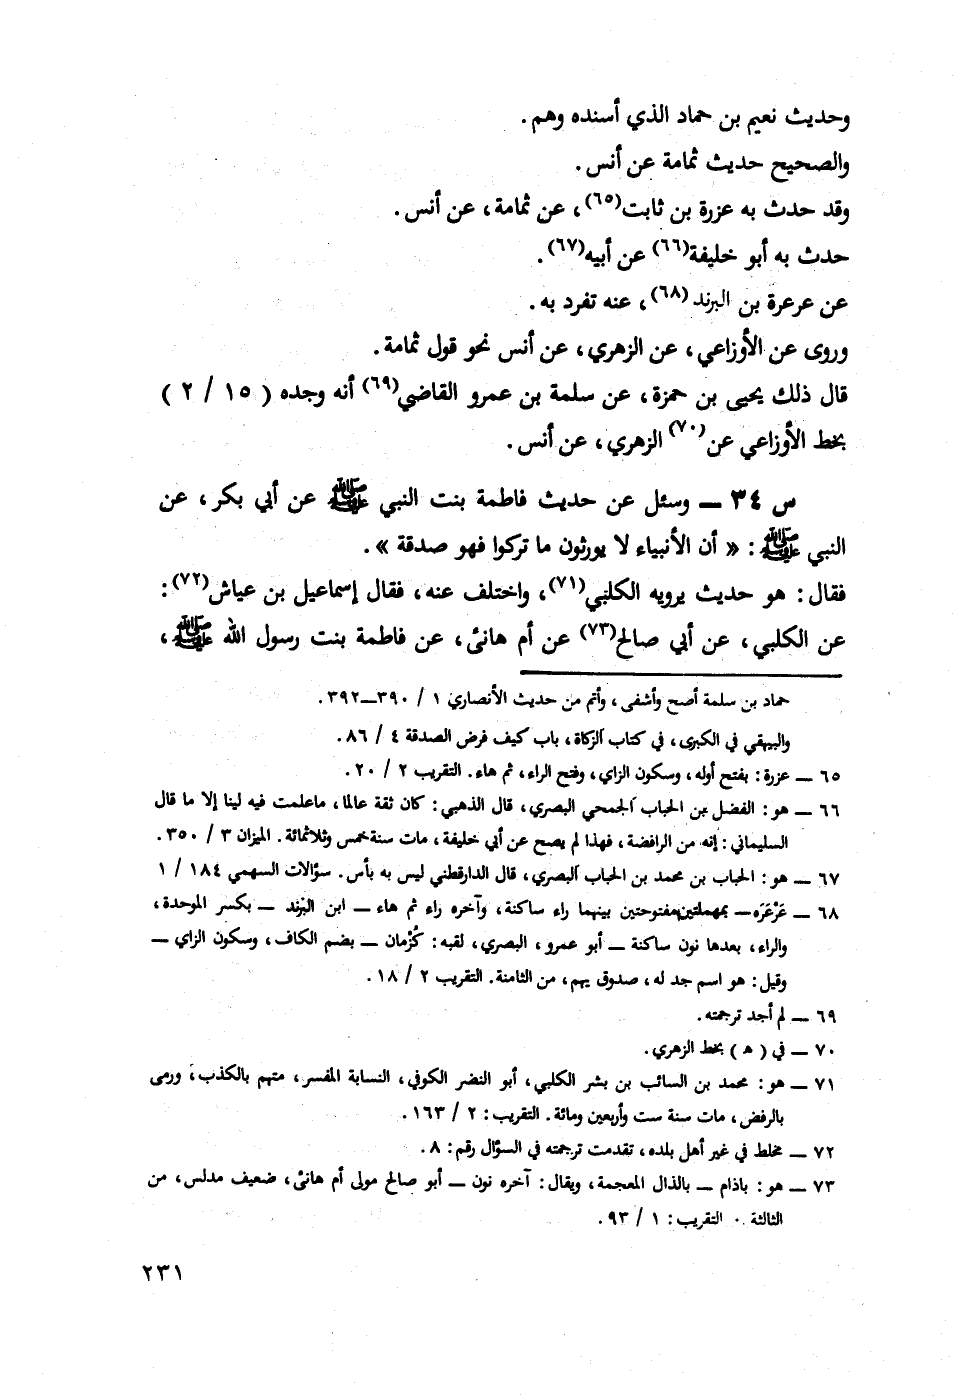 وحديث نعيم بن حماد الذي أسنده وهم.
والصحيح حديث ثمامة عن أنس.
وقد حدث به عزرة بن ثابت(٦٥)، عن ثمامة، عن أنس.
حدث به أبو خليفة(٦٦) عن أبيه(٦٧).
عن عرعرة بن البرند(٦٨)، عنه تفرد به.
وروى عن الأوزاعي، عن الزهري، عن أنس نحو قول ثمامة.
قال ذلك يحيى بن حمزة، عن سلمة بن عمرو القاضي(٦٩) أنه وجده ( ١٥ / ٢ )
بخط الأوزاعي عن(٧٠) الزهري، عن أنس.
س ٣٤ ــ وسئل عن حديث فاطمة بنت النبي ﷺ عن أبي بكر، عن
النبي ﷺ: « أن الأنبياء لا يورثون ما تركوا فهو صدقة ».
فقال: هو حديث يرويه الكلبي(٧١)، واختلف عنه، فقال إسماعيل بن عياش(٧٢):
عن الكلبي، عن أبي صالح(٧٣) عن أم هانئ، عن فاطمة بنت رسول الله ﷺ،
حماد بن سلمة أصح وأشفى، وأتم من حديث الأنصاري ١ / ٣٩٠ــ٣٩٢.
والبيهقي في الكبرى، في كتاب الزكاة، باب كيف فرض الصدقة ٤ / ٨٦.
٦٥ ــ عزرة: بفتح أوله، وسكون الزاي، وفتح الراء، ثم هاء. التقريب ٢ / ٢٠.
٦٦ ــ هو: الفضل بن الحباب الجمحي البصري، قال الذهبي: كان ثقة عالما، ماعلمت فيه لينا إلا ما قال
السليماني: إنه من الرافضة، فهذا لم يصح عن أبي خليفة، مات سنة خمس وثلاثمائة. الميزان ٣ / ٣٥٠.
٦٧ ــ هو: الحباب بن محمد بن الحباب البصري، قال الدارقطني ليس به بأس. سؤالات السهمي ١٨٤ / ١
٦٨ ــ عَرْعَرَه ــ بمهملتين مفتوحتين بينهما راء ساكنة، وآخره راء ثم هاء ــ ابن البرند ــ بكسر الموحدة،
والراء، بعدها نون ساكنة ــ أبو عمرو، البصري، لقبه: كُزْمان ــ بضم الكاف، وسكون الزاي ــ
وقيل: هو اسم جد له، صدوق يهم، من الثامنة. التقريب ٢ / ١٨.
٦٩ ــ لم أجد ترجمته.
٧٠ ــ في ( هـ ) بخط الزهري.
٧١ ــ هو: محمد بن السائب بن بشر الكلبي، أبو النضر الكوفي، النسابة المفسر، متهم بالكذب، ورمى
بالرفض، مات سنة ست وأربعين ومائة. التقريب: ٢ / ١٦٣.
٧٢ ــ مخلط في غير أهل بلده، تقدمت ترجمته في السؤال رقم: ٨.
٧٣ ــ هو: باذام ــ بالذال المعجمة، ويقال: آخره نون ــ أبو صالح مولى أم هانئ، ضعيف مدلس، من
الثالثة. التقريب: ١ / ٩٣.
٢٣١